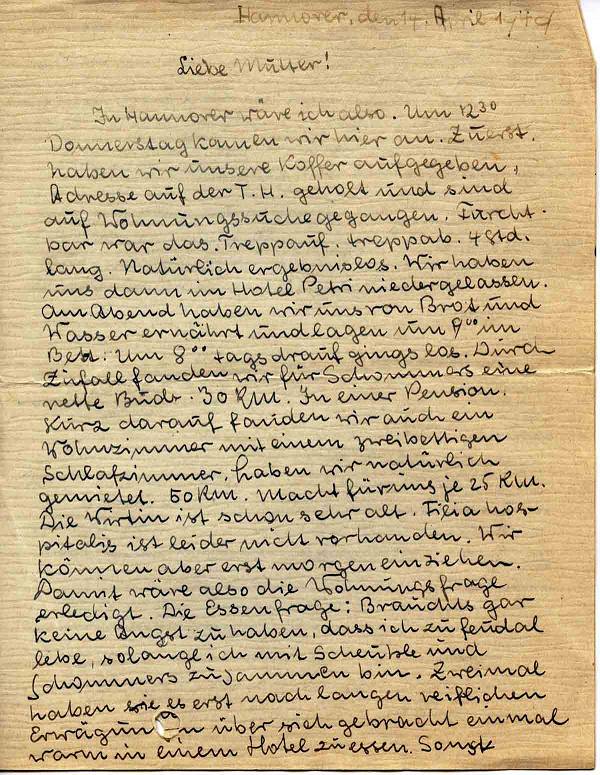 Hannover, den 14. April
Liebe Mutter!
In Hannover wäre ich also. Um 12³⁰
Donnerstag kamen wir hier an. Zuerst
haben wir unsere Koffer aufgegeben,
Adresse auf der T.H. geholt und sind
auf Wohnungssuche gegangen. Furcht-
bar war das. Treppauf, treppab. 4 Std.
lang. Natürlich ergebnislos. Wir haben
uns dann im Hotel Petri niedergelassen.
Am Abend haben wir uns von Brot und
Wasser ernährt und lagen um 9⁰⁰ im
Bett. Um 8⁰⁰ tags drauf gings los. Durch
Zufall fanden wir für Schommers eine
nette Bude. 30 RM. In einer Pension.
Kurz darauf fanden wir auch ein
Wohnzimmer mit einem zweibettigen
Schlafzimmer, haben wir natürlich
gemietet. 50 RM. Macht für uns je 25 RM.
Die Wirtin ist schon sehr alt. Filia hos-
pitalis ist leider nicht vorhanden. Wir
können aber erst morgen einziehen.
Damit wäre also die Wohnungsfrage
erledigt. Die Essenfrage: Brauchts gar
keine Angst zu haben, dass ich zu feudal
lebe, solange ich mit Scheuble und
Schommers zusammen bin. Zweimal
haben sie es erst nach langen reiflichen
Erwägungen über sich gebracht einmal
warm in einem Hotel zu essen. Sonst